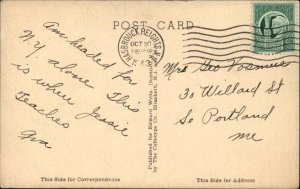 POST CARD
HASBROUCK HEIGHTS
OCT 20
Am headed for
N.Y. alone This
is where Jessie
Teaches
Eva
Published for Edward Wolfe,
by The Collotype Co., Elizabeth, N.J.
Mrs Geo Vosmus
30 Willard St
So Portland
Me
This Side for Correspondence
This Side for Address